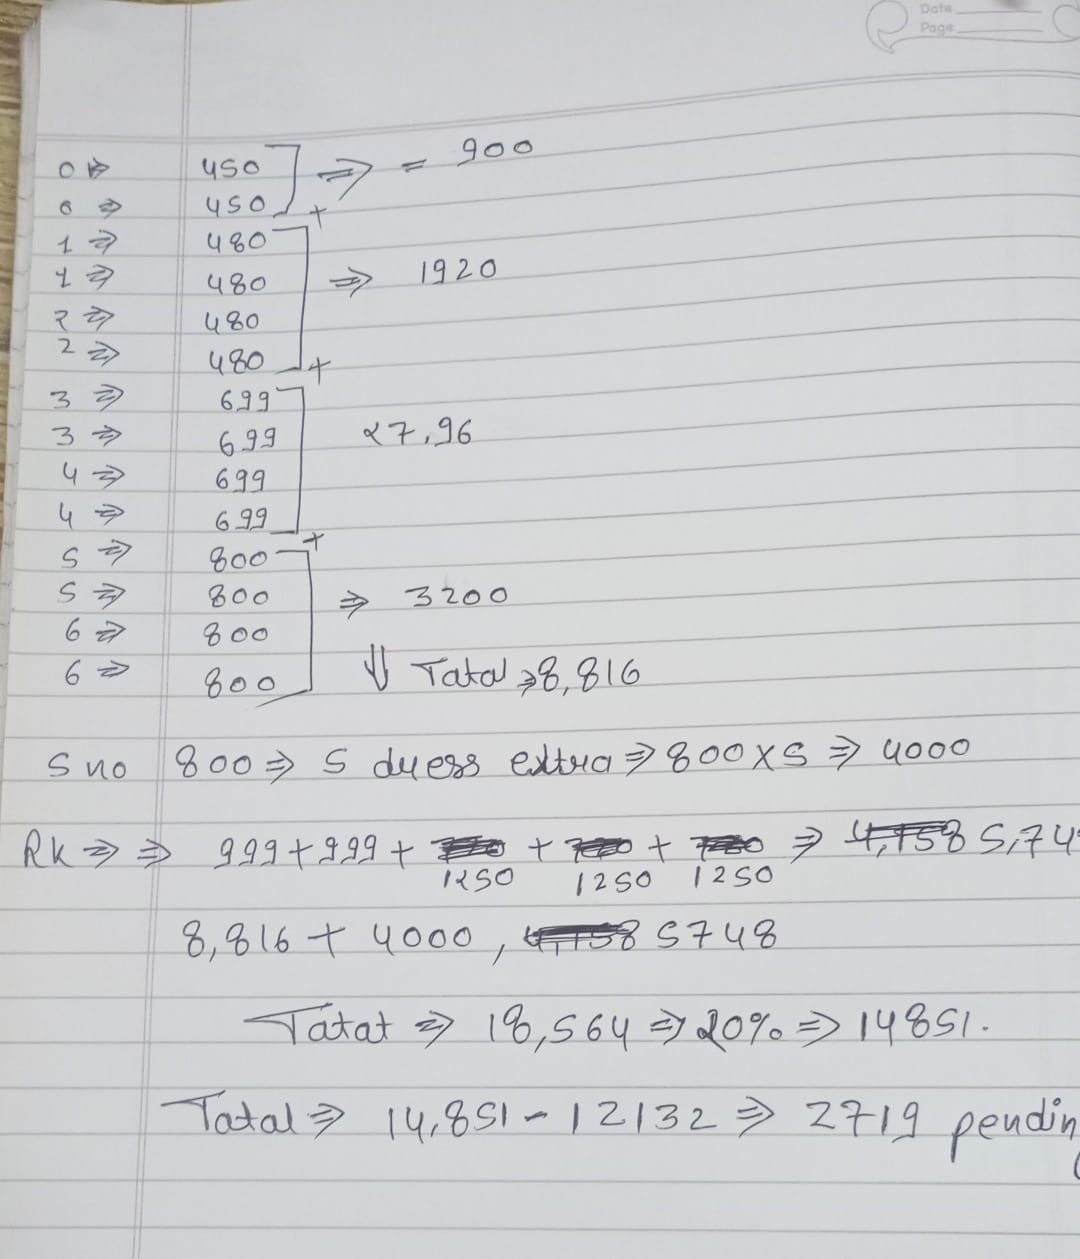 Date
Page
0 ⇒ 450 ⇒ = 900
0 ⇒ 450 +
1 ⇒ 480
1 ⇒ 480 ⇒ 1920
2 ⇒ 480
2 ⇒ 480 +
3 ⇒ 699
3 ⇒ 699 27,96
4 ⇒ 699
4 ⇒ 699 +
5 ⇒ 800
5 ⇒ 800 ⇒ 3200
6 ⇒ 800
6 ⇒ 800 ⇓ Tatal ⇒ 8,816
5 no 800 ⇒ 5 duess extra ⇒ 800 x 5 ⇒ 4000
RK ⇒ ⇒ 999 + 999 + + + ⇒ 5,74
1250 1250 1250
8,816 + 4000, 5748
Tatat ⇒ 18,564 ⇒ 20% ⇒ 14851.
Tatal ⇒ 14,851 - 12132 ⇒ 2719 pendin